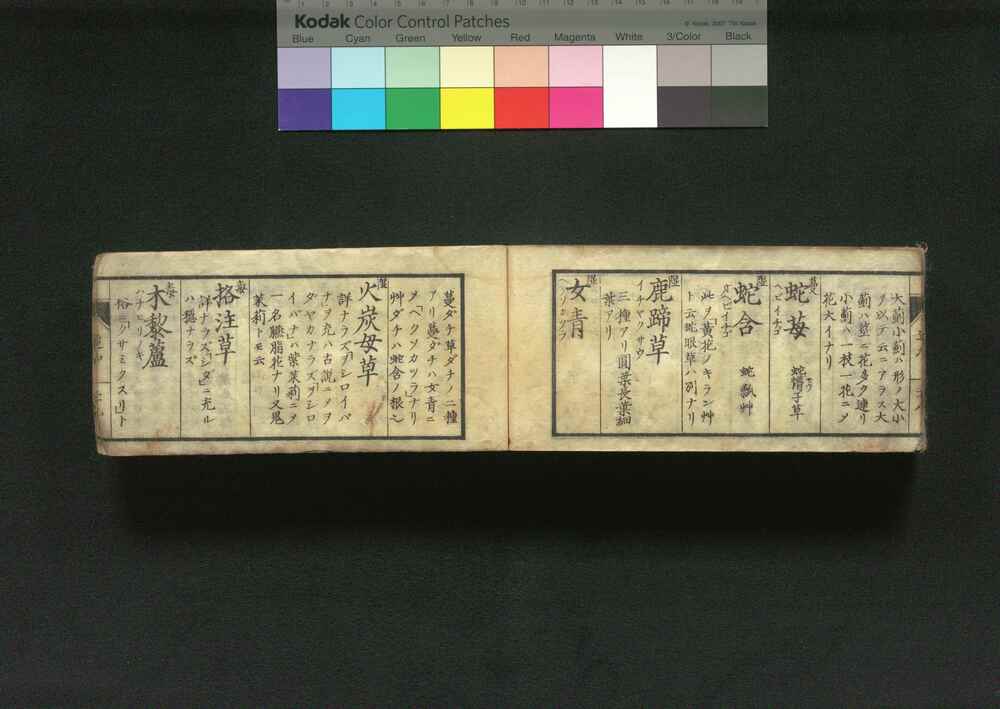 Kodak Color Control Patches
Blue Cyan Green Yellow Red Magenta White 3/Color Black
大薊小薊ハ形ノ大小
ノ以テ云ニアラス大
薊ハ叢ニ花多ク連リ
小薊ハ一枝一花ニメ
花大イナリ
蛇苺 蛇繒子草
ヘビイチゴ
蛇含 蛇㼎艸
ヲヘビイチゴ
此ヲ黄花ノキラン艸
ト云蛇眼草ハ別ナリ
鹿蹄草
イチヤクサウ
三種アリ圓葉長葉細
葉アリ
女青
ヘクソカヅラ
蔓ダチ草ダチノ二種
アリ蔓ダチハ女青ニ
メヘクソカツラナリ
艸ダチハ蛇含ノ根也
火炭母草
詳ナラズヲシロイバ
ナニ充ハ古説ニメヲ
ダヤカナラズヲシロ
イバナハ紫茉莉ニメ
一名臙脂花ナリ又鬼
茉莉トモ云
格注草
詳ナラズシダニ充ル
ハ穏ナラズ
木藜蘆
ハナヒリノキ
俗ニクサミクスリト